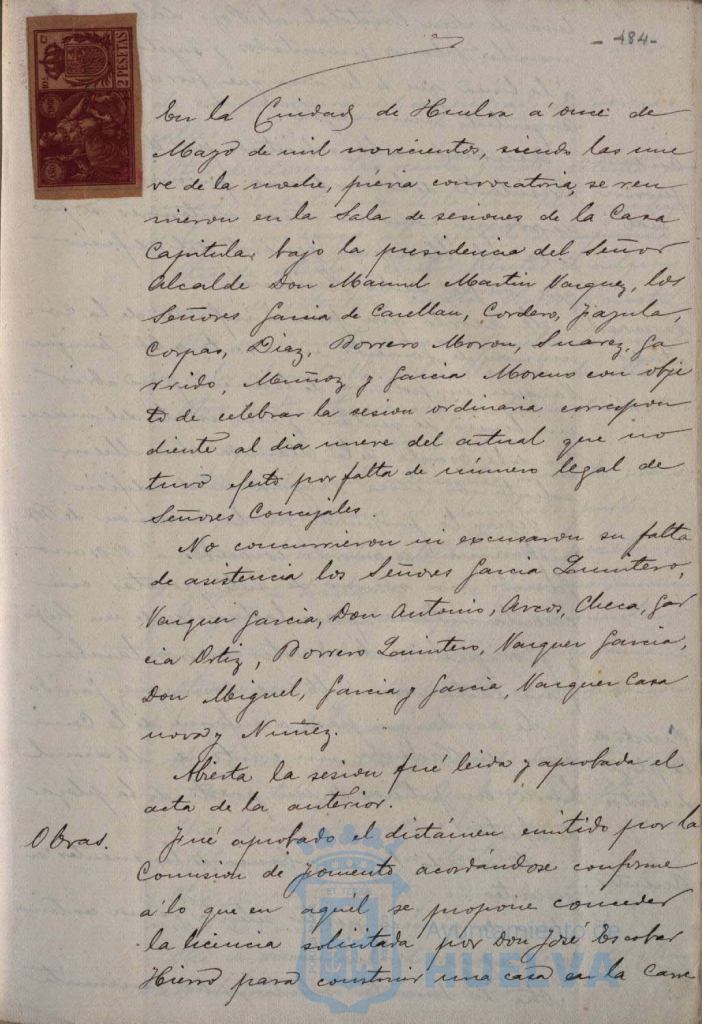 - 484 -
10ª C.ª
2 PESETAS
En la Ciudad de Huelva á once de
Mayo de mil novecientos, siendo las nue
ve de la noche, prévia convocatoria, se reu
nieron en la Sala de sesiones de la Casa
Capitular bajo la presidencia del Señor
Alcalde Don Manuel Martin Vazquez, los
Señores Garcia de Casellan, Cordero, Jazula,
Corpas, Diaz, Borrero Moron, Suarez, Ga
rrido, Muñoz y Garcia Moreno con obje
to de celebrar la sesion ordinaria correspon
diente al dia nueve del actual que no
tuvo efecto por falta de número legal de
Señores Concejales.
No concurrieron ni excusaron su falta
de asistencia los Señores Garcia Quintero,
Vazquez Garcia, Don Antonio, Arcos, Checa, Gar
cia Ortiz, Borrero Quintero, Vazquez Garcia,
Don Miguel, Garcia y Garcia, Vazquez Casa
nova y Nuñez.
Abierta la sesion fué leida y aprobada el
acta de la anterior.
Obras.
Fué aprobado el dictámen emitido por la
Comision de Fomento acordándose conforme
á lo que en aquél se propone conceder
la licencia solicitada por Don José Escobar
Hierro para construir una casa en la Carre
Ayuntamiento de
HUELVA